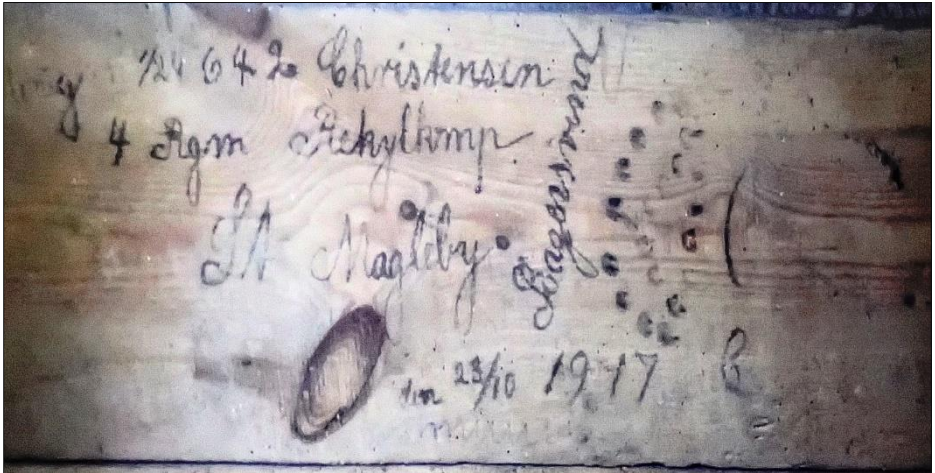 642 Christensen
4 Rgm Rekylkmp
St Magleby
Bagosvinu
den 23/10 1917